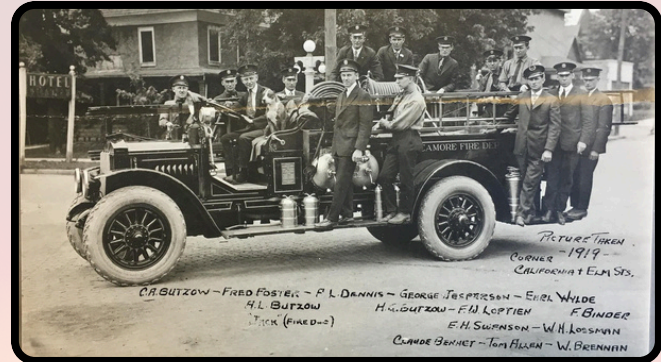 HOTEL
CAMORE FIRE DE
PICTURE TAKEN
-1919-
CORNER
CALIFORNIA & ELM STS.
C.A. BUTZOW - FRED FOSTER - P.L. DENNIS - GEORGE JESPERSON - EARL WYLDE
H.L. BUTZOW H.G. BUTZOW - F.W. LOPTIEN F. BINDER
"JACK" (FIREDOG) E.H. SWENSON - W.H. LOSSMAN
CLAUDE BENNET - TOM ALLEN - W. BRENNAN